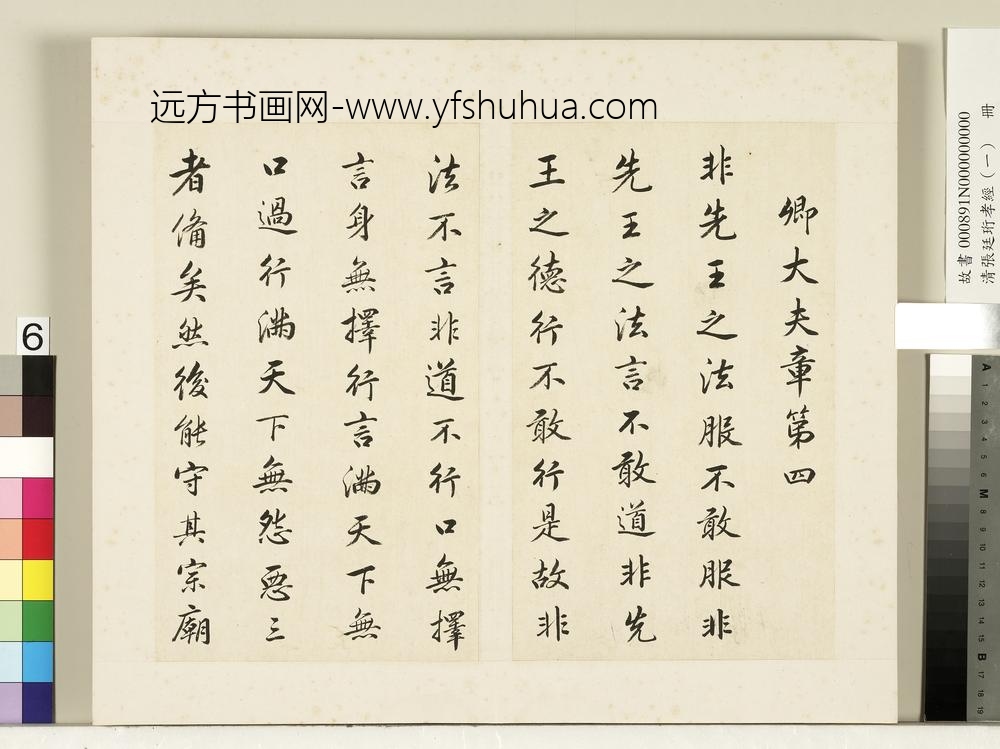 远方书画网-www.yfshuhua.com
卿大夫章第四
非先王之法服不敢服非
先王之法言不敢道非先
王之德行不敢行是故非
法不言非道不行口無擇
言身無擇行言滿天下無
口過行滿天下無怨惡三
者備矣然後能守其宗廟
故書 000891N000000000
清張廷珩孝經（一） 冊
6
A 1 2 3 4 5 6 M 8 9 10 11 12 13 14 15 B 17 18 19